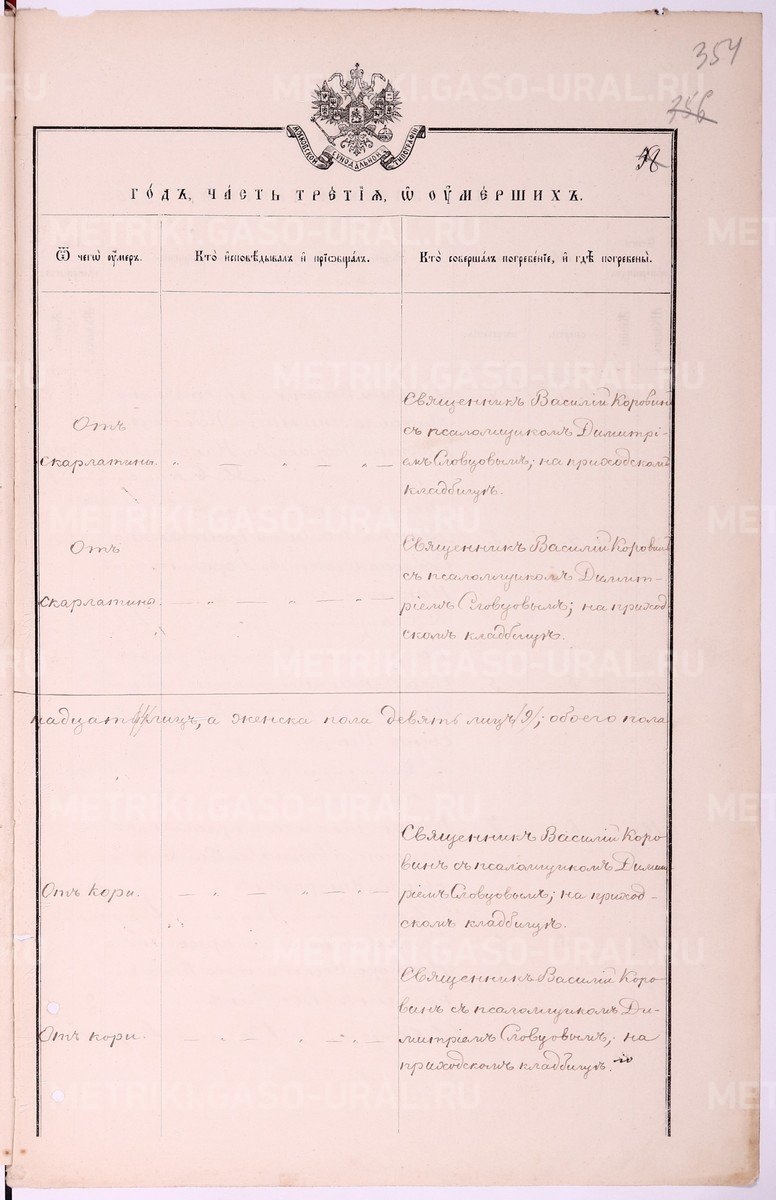 354
356
58
МОСКОВСКОЙ СѴНОДАЛЬНОЙ ТИПОГРАФІИ
ГО́ДЪ, ЧА́СТЬ ТРЕ́ТІЯ, Ѽ ОУМЕ́РШИХЪ.
Ѿ чегѡ̀ оу҆́меръ.
Кто̀ и҆сповѣ́дывалъ и҆ прїѡбща́лъ.
Кто̀ соверша́лъ погребе́нїе, и҆ гдѣ̀ погребены̀.
Отъ
скарлатины.
Священникъ Василій Коровинъ
съ псаломщикомъ Димитрі-
емъ Словцовымъ; на приходскомъ
кладбищѣ.
Отъ
скарлатины.
Священникъ Василій Коровинъ
съ псаломщикомъ Димит-
ріемъ Словцовымъ; на приход
скомъ кладбищѣ.
надцать лицъ, а женска пола девять лицъ /9/; обоего пола
Отъ кори.
Священникъ Василій Коро-
винъ съ псаломщикомъ Димит
ріемъ Словцовымъ; на приход-
скомъ кладбищѣ.
Отъ кори.
Священникъ Василій Коро-
винъ съ псаломщикомъ Ди-
митріемъ Словцовымъ; на
приходскомъ кладбищѣ.
METRIKI.GASO-URAL.RU